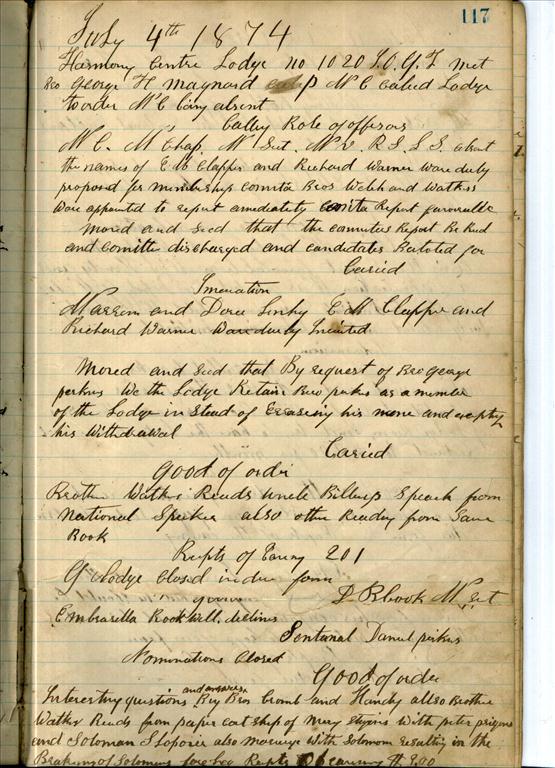 117
July 4th 1874
Harmony Centre Lodge no 1020 I.O.G.T. met
Bro George H Maynard W C called Lodge
to order W C Cary absent
Calling Role of officers
W C. W Chap. W Sect. W V. R S. L S. absent
the names of E M Clapper and Richard Warner ware duly
proposed for membership comita Bros Welch and Watkes
ware appointed to report amediately comita Report favourable
Moved and secd that the committes Report Be Recd
and comitte discharged and candidates Baloted for
Caried
Initiation
and Dorce E M Clapper and
Richard Warner ware duly Iniated
Moved and secd that By request of Bro George
perkins We the Lodge Retain Bro perkins as a member
of the Lodge in stead of Erasing his name and excepting
his Withdrawal
Caried
Good of order
Brother Watkes Reads uncle Billings Speach from
National Speaker also other Reading from same
Book
Recpts of Evening 2 0 1
Lodge Closed in due form
D R Cook W Sect
Embrasetta Rockwell declins
Sentunal Danul perkus
Nominations Closed
Good of order
Interesting questions and answers By Bros Cromb and Handy allso Brother
Watkes Reads from paper cat ship of mery with peter
and Soloman also marrage with Solomon resalting in the
Breaking of Solomons Recpts of Eavning